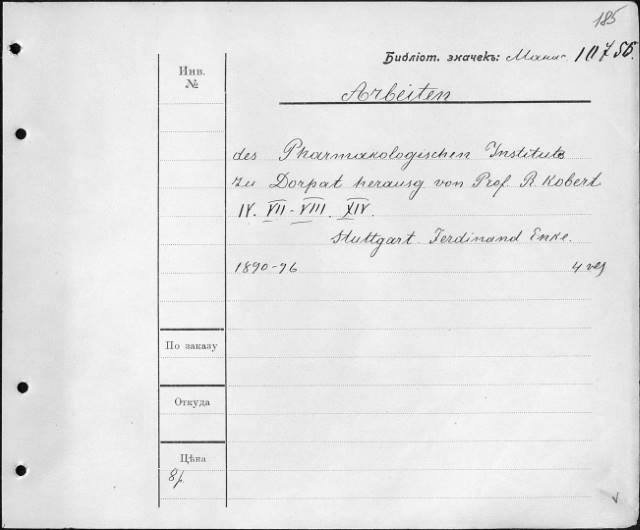 185
Библіот. значекъ: 10756.
Инв.
№
Arbeiten
des Pharmakologischen Instituts
zu Dorpat herausg von Prof. R. Kobert
IV. VII - VIII. XIV.
Stuttgart Ferdinand Enke.
1890-96
4
По заказу
Откуда
Цѣна
8р.